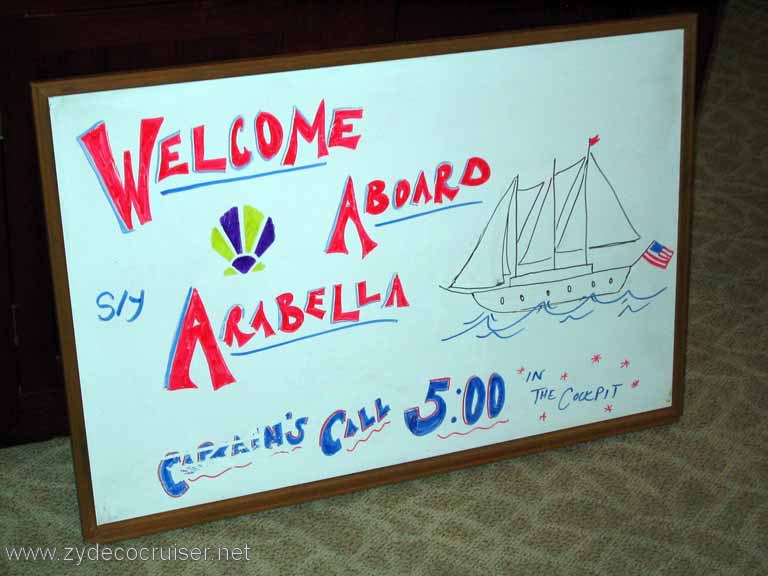 WELCOME
ABOARD
S/Y
ARABELLA
CAPTAIN'S CALL 5:00 IN
THE COCKPIT
www.zydecocruiser.net